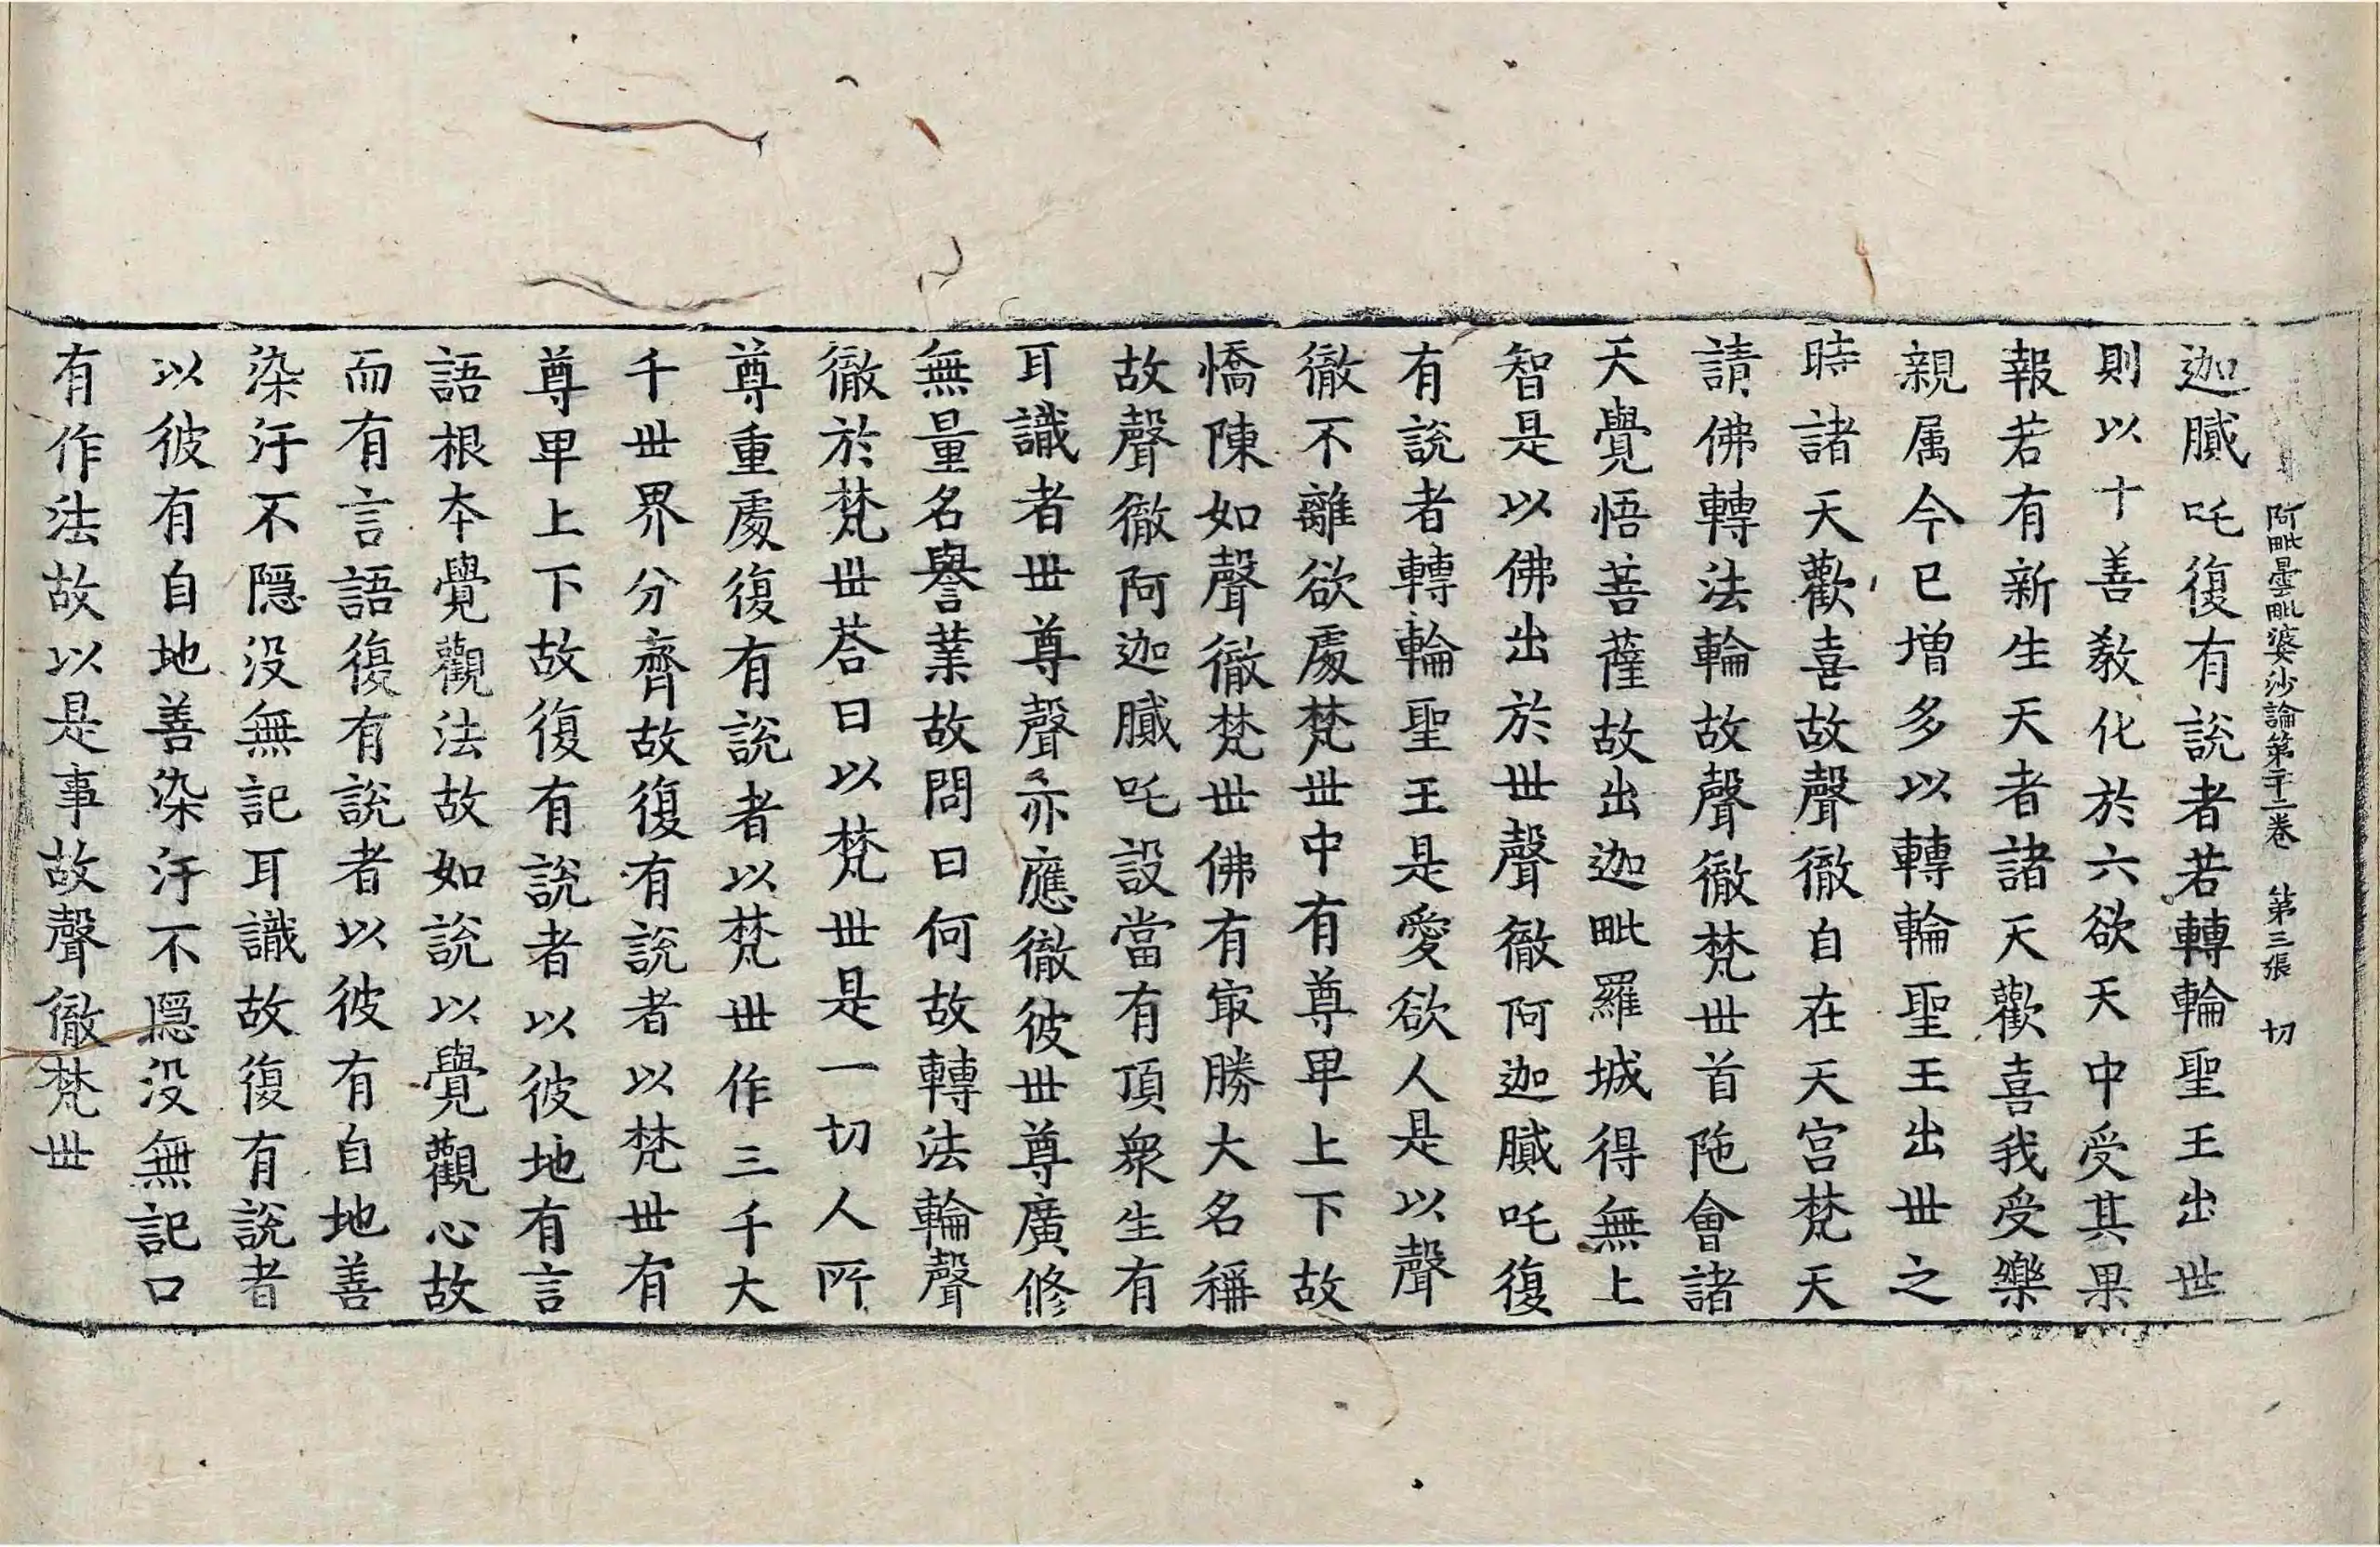 阿毗曇毗婆沙論第二十二卷 第三張 切
迦膩吒復有說者若轉輪聖王出世
則以十善教化於六欲天中受其果
報若有新生天者諸天歡喜我受樂
親属今已增多以轉輪聖王出世之
時諸天歡喜故聲徹自在天宮梵天
請佛轉法輪故聲徹梵世首陁會諸
天覺悟菩薩故出迦毗羅城得無上
智是以佛出於世聲徹阿迦膩吒復
有說者轉輪聖王是愛欲人是以聲
徹不離欲處梵世中有尊卑上下故
憍陳如聲徹梵世佛有㝡勝大名稱
故聲徹阿迦膩吒設當有頂衆生有
耳識者世尊聲亦應徹彼世尊廣修
無量名譽業故問曰何故轉法輪聲
徹於梵世荅曰以梵世是一切人所
尊重處復有說者以梵世作三千大
千世界分齊故復有說者以梵世有
尊卑上下故復有說者以彼地有言
語根本覺觀法故如說以覺觀心故
而有言語復有說者以彼有自地善
染汙不隱没無記耳識故復有說者
以彼有自地善染汙不隱没無記口
有作法故以是事故聲徹梵世